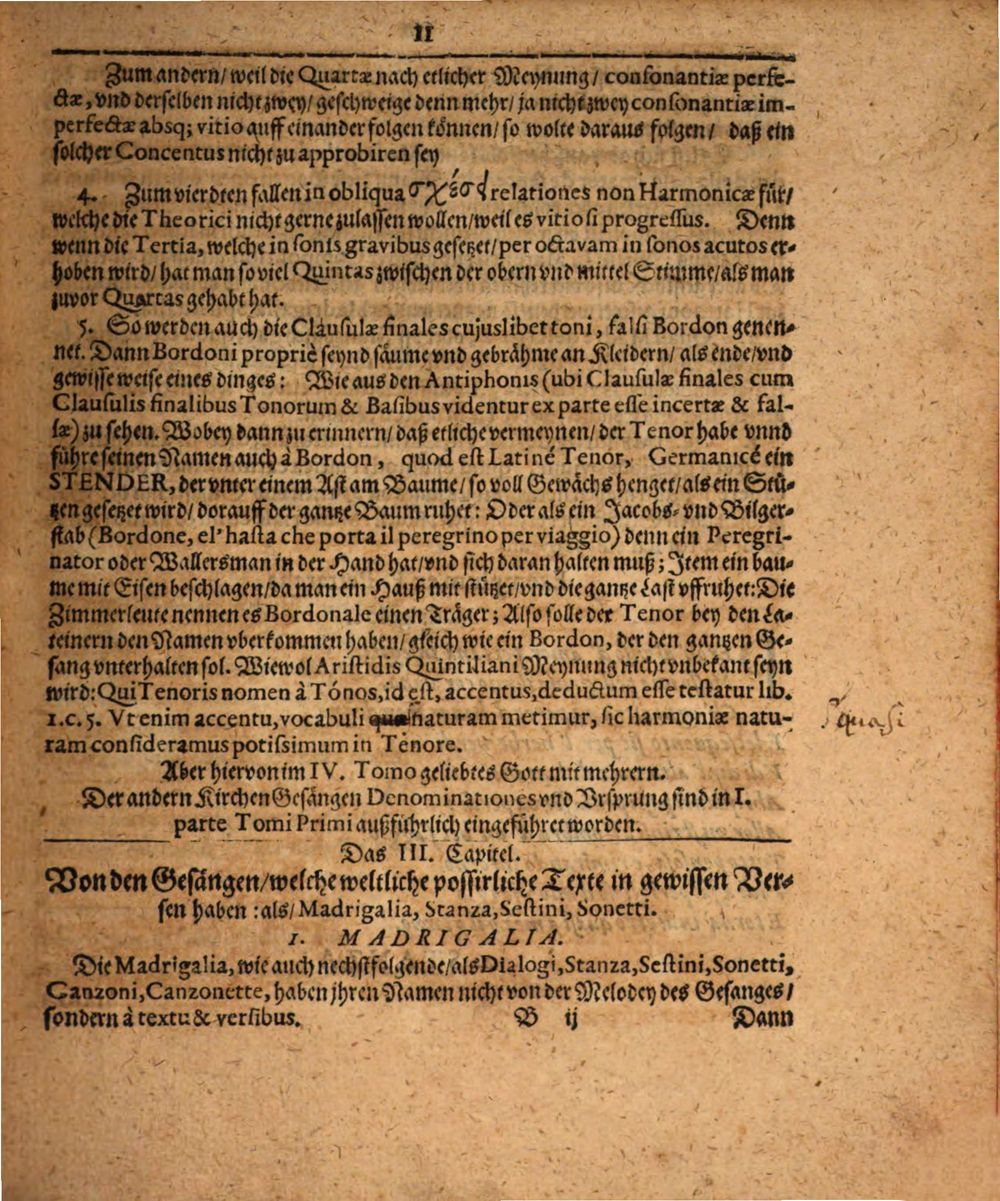 11
Zum andern/ weil die Quartæ nach etlicher Meynung/ consonantiæ perfe-
ctæ, vnd derselben nicht zwey/ geschweige denn mehr/ ja nicht zwey consonantiæ im-
perfectæ absq; vitio auff einander folgen können/ so wolte daraus folgen/ daß ein
solcher Concentus nicht zu approbiren sey
4. Zum vierdten fallen in obliqua relationes non Harmonicæ für/
welche die Theorici nicht gerne zulassen wollen/ weil es vitiosi progressus. Denn
wenn die Tertia, welche in sonis gravibus gesetzet/ per octavam in sonos acutos er-
hoben wird/ hat man so viel Quintas zwischen der obern vnd mittel Stimme/ als man
zuvor Quartas gehabt hat.
5. So werden auch die Clausulæ finales cujuslibet toni, falsi Bordon genen-
net. Dann Bordoni propriè seynd säume vnd gebrähme an Kleidern/ als ende/ vnd
gewisse weise eines dinges: Wie aus den Antiphonis (ubi Clausulæ finales cum
Clausulis finalibus Tonorum & Basibus videntur ex parte esse incertæ & fal-
sæ) zu sehen. Wobey dann zu erinnern/ daß etliche vermeynen/ der Tenor habe vnnd
führe seinen Namen auch à Bordon, quod est Latiné Tenor, Germanicé ein
STENDER, der vnter einem Ast am Baume/ so voll Gewächs henget/ als ein Stü-
tzen gesetzet wird/ dorauff der gantze Baum ruhet: Oder als ein Jacobs- vnd Bilger-
stab (Bordone, el' hasta che porta il peregrino per viaggio) denn ein Peregri-
nator oder Wallersman in der Hand hat/ vnd sich daran halten muß; Item ein bau-
me mit Eisen beschlagen/ da man ein Hauß mit stützet/ vnd die gantze Last vffruhet: Die
Zimmerleute nennen es Bordonale einen Träger; Also solle der Tenor bey den La-
teinern den Namen vberkommen haben/ gleich wie ein Bordon, der den gantzen Ge-
sang vnterhalten sol. Wiewol Aristidis Quintiliani Meynung nicht vnbekant seyn
wird: Qui Tenoris nomen à Tónos, id est, accentus, deductum esse testatur lib.
1. c. 5. Vt enim accentu, vocabuli naturam metimur, sic harmoniæ natu- quasi
ram consideramus potissimum in Tenore.
Aber hiervon im IV. Tomo geliebtes Gott mit mehrern.
Der andern Kirchen Gesängen Denominationes vnd Vrsprung sind in I.
parte Tomi Primi außführlich eingeführet worden.
Das III. Capitel.
Von den Gesängen/ welche weltliche possirliche Texte in gewissen Ver-
sen haben: als/ Madrigalia, Stanza, Sestini, Sonetti.
1. MADRIGALIA.
Die Madrigalia, wie auch nechstfolgende/ als Dialogi, Stanza, Sestini, Sonetti,
Canzoni, Canzonette, haben jhren Namen nicht von der Melodey des Gesanges/
sondern à textu & versibus. B ij Dann